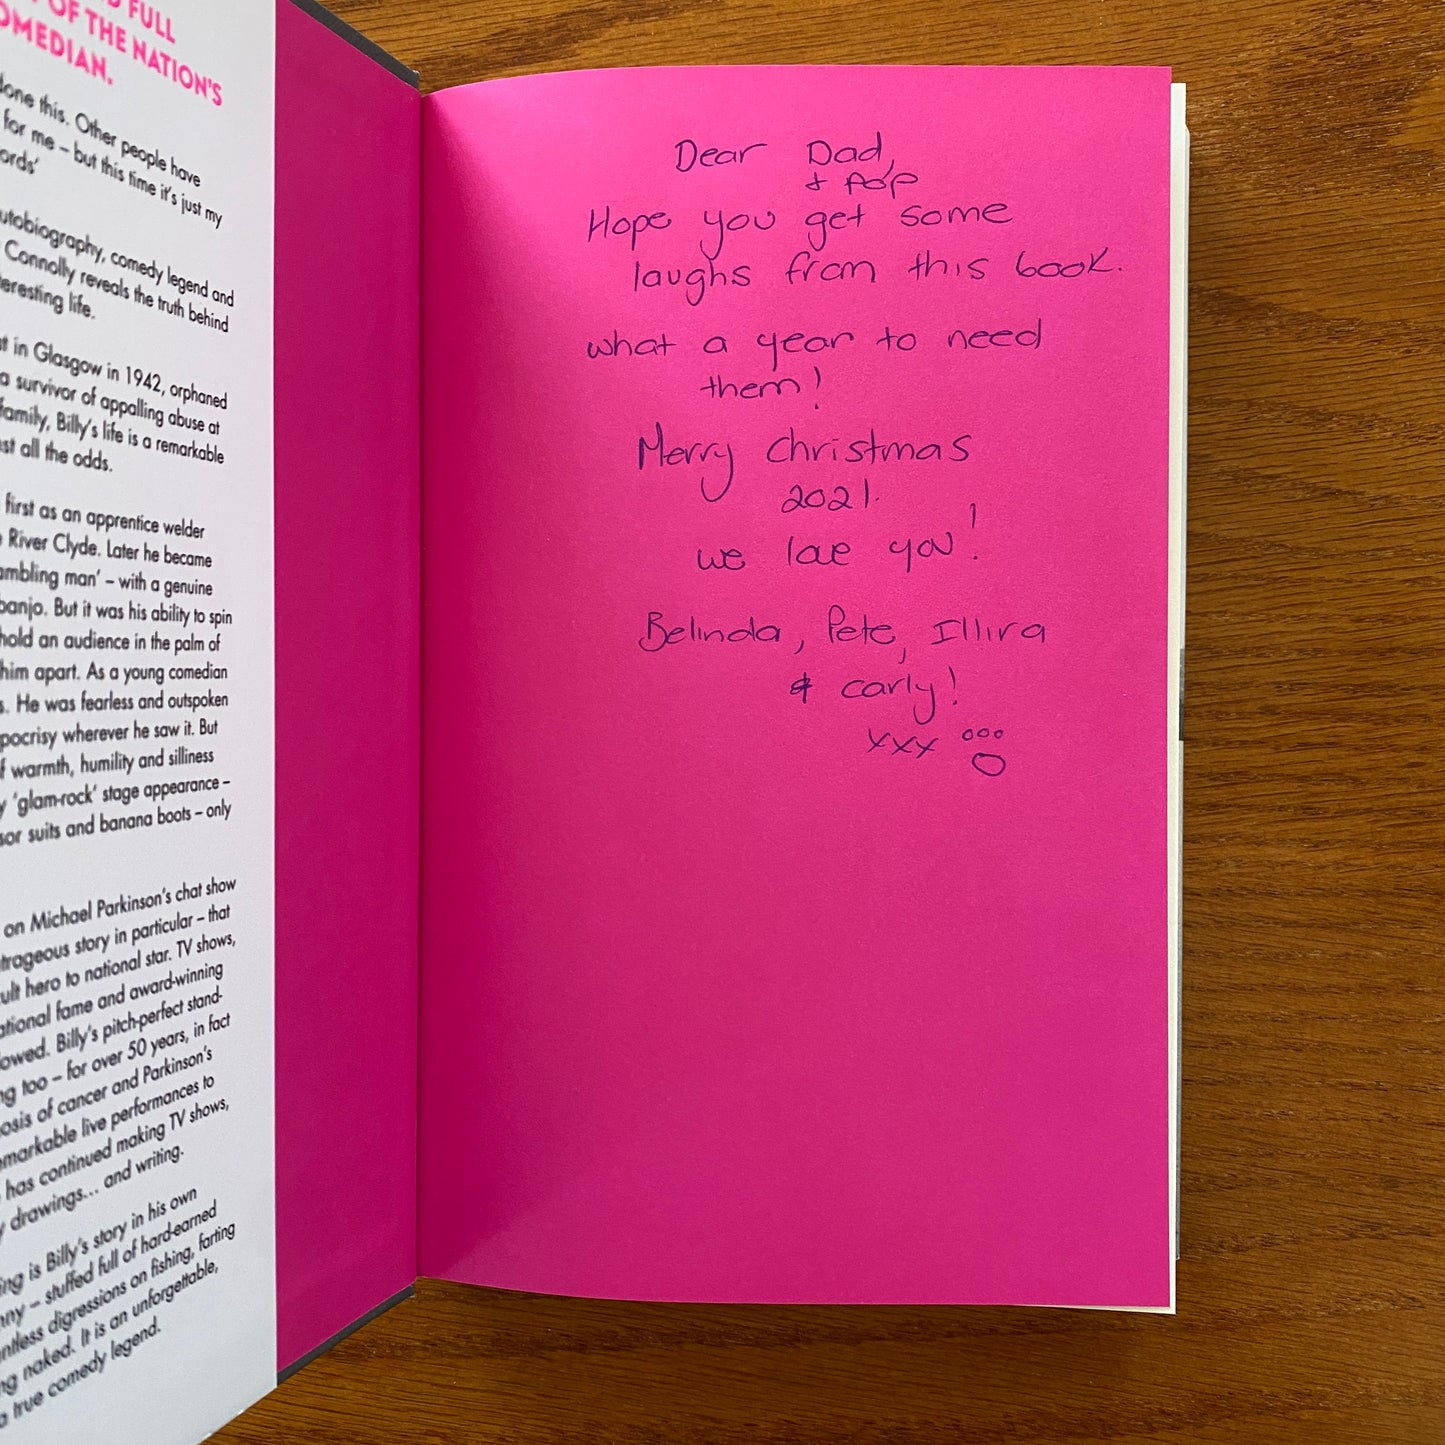 FULL
OF THE NATION'S
OMEDIAN.
done this. Other people have
for me – but this time it's just my
ords'
utobiography, comedy legend and
Connolly reveals the truth behind
teresting life.
t in Glasgow in 1942, orphaned
a survivor of appalling abuse at
family, Billy's life is a remarkable
st all the odds.
first as an apprentice welder
River Clyde. Later he became
ambling man' – with a genuine
banjo. But it was his ability to spin
hold an audience in the palm of
him apart. As a young comedian
s. He was fearless and outspoken
pocrisy wherever he saw it. But
f warmth, humility and silliness
y 'glam-rock' stage appearance –
sor suits and banana boots – only
on Michael Parkinson's chat show
trageous story in particular – that
ult hero to national star. TV shows,
ational fame and award-winning
lowed. Billy's pitch-perfect stand-
ng too – for over 50 years, in fact
osis of cancer and Parkinson's
emarkable live performances to
has continued making TV shows,
y drawings... and writing.
ing is Billy's story in his own
nny – stuffed full of hard-earned
ntless digressions on fishing, farting
ng naked. It is an unforgettable,
a true comedy legend.
Dear Dad,
+ POP
Hope you get some
laughs from this book.
what a year to need
them!
Merry Christmas
2021.
we love you!
Belinda, Pete, Illira
& Carly!
xxx